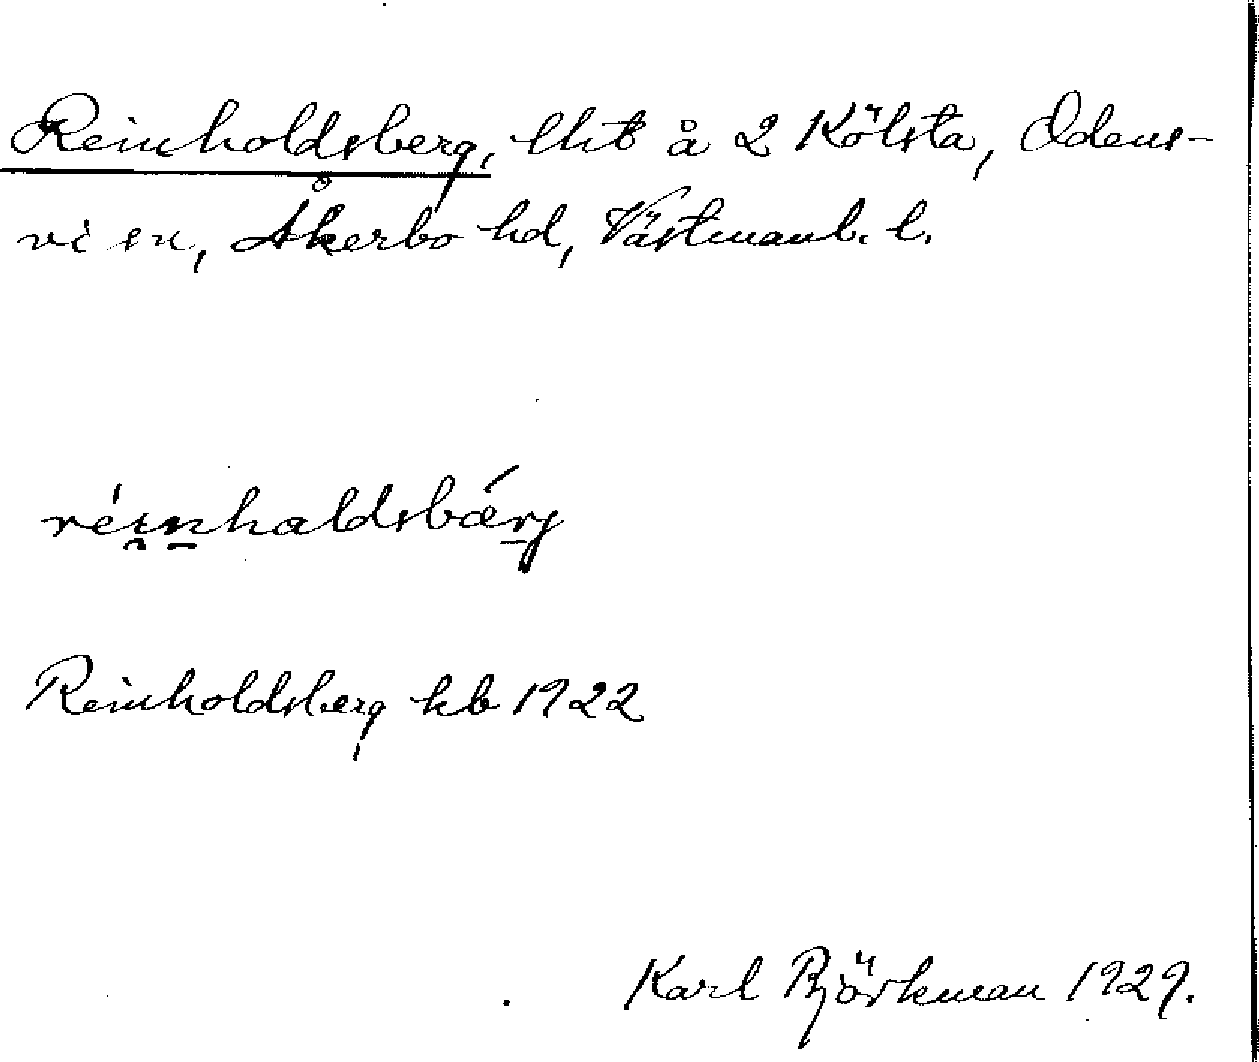 Reinholdsberg, lht å 2 Kölsta, Odens-
vi sn, Åkerbo hd, Västmanl. l.
réi̯n̲haldsbǽrj
Reinholdsberg kb 1922
Karl Björkman 1929.